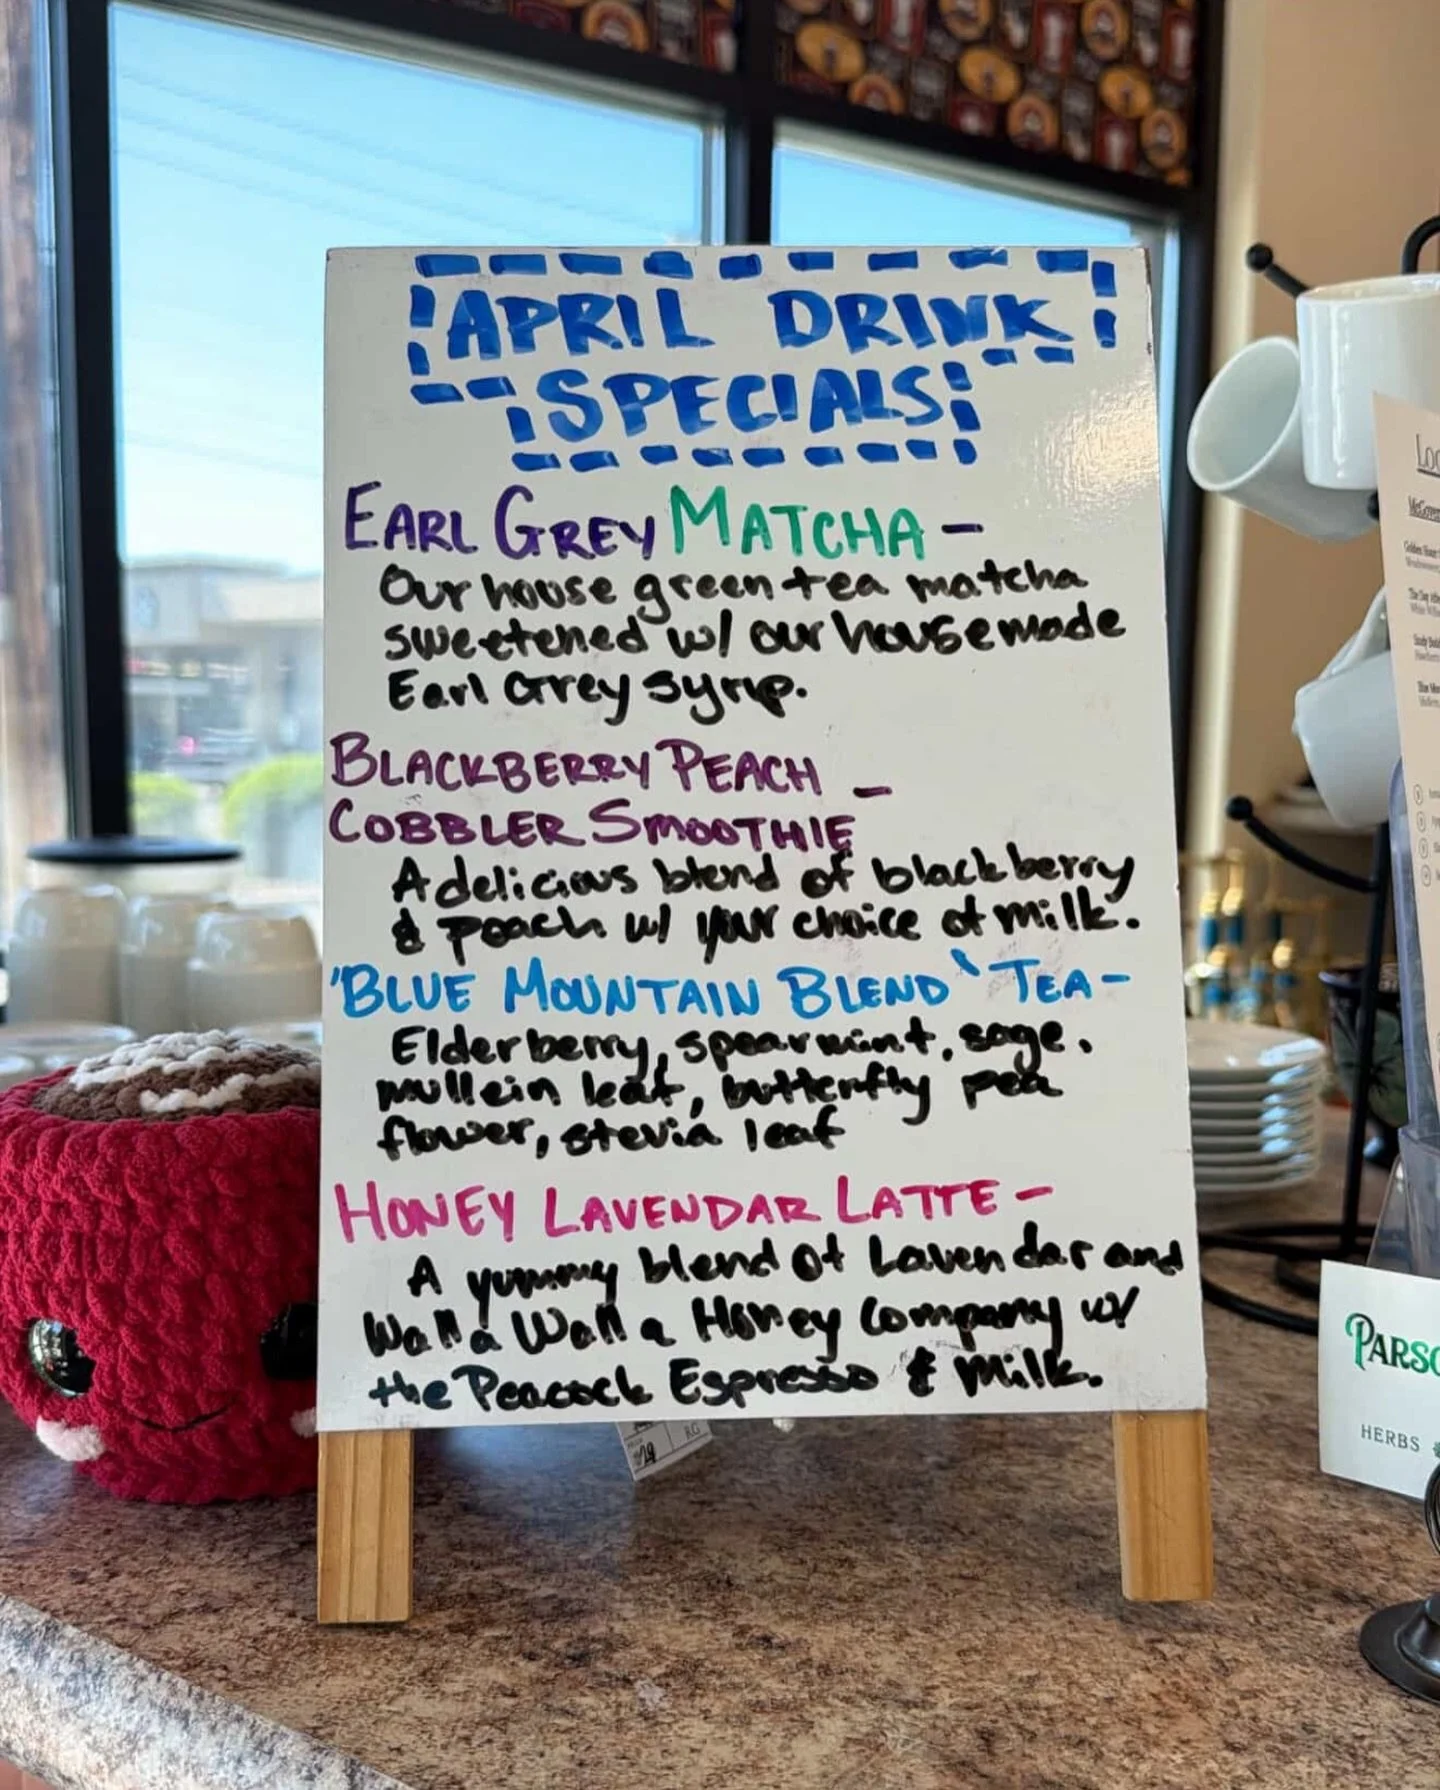 APRIL DRINK
SPECIALS
EARL GREY MATCHA -
Our house green tea matcha
sweetened w/ our housemade
Earl Grey syrup.
BLACKBERRY PEACH -
COBBLER SMOOTHIE
A delicious blend of blackberry
& peach w/ your choice of milk.
'BLUE MOUNTAIN BLEND' TEA -
Elderberry, spearmint, sage,
mullein leaf, butterfly pea
flower, stevia leaf
HONEY LAVENDAR LATTE -
A yummy blend of Lavendar and
Walla Walla Honey Company w/
the Peacock Espresso & Milk.
PARS
HERBS